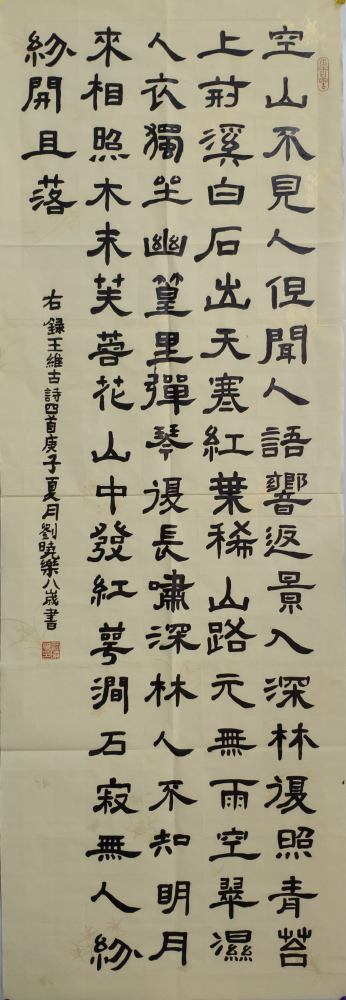 空山不見人但聞人語響返景入深林復照青苔
上荊溪白石出天寒紅葉稀山路元無雨空翠濕
人衣獨坐幽篁里彈琴復長嘯深林人不知明月
來相照木末芙蓉花山中發紅萼澗石寂無人紛
紛開且落
右錄王維古詩四首庚子夏月劉曉樂八歲書